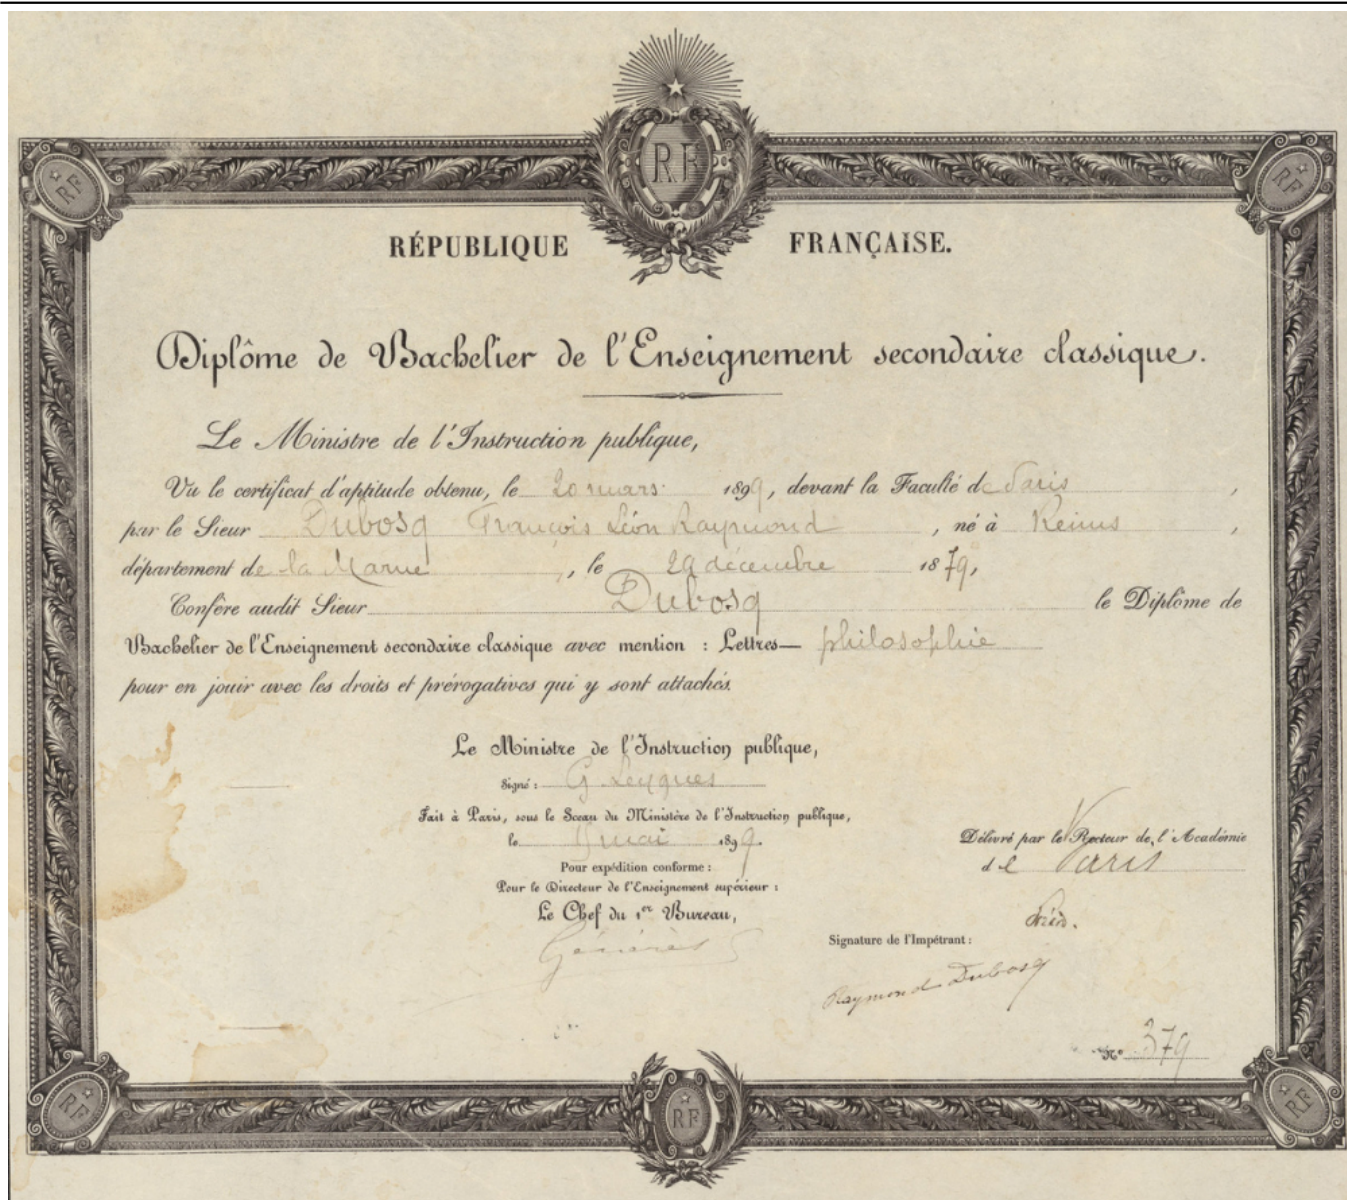 RF
RF
RF
RÉPUBLIQUE FRANÇAISE.
Diplôme de Bachelier de l'Enseignement secondaire classique.
Le Ministre de l'Instruction publique,
Vu le certificat d'aptitude obtenu, le 20 mars 1899, devant la Faculté de Paris,
par le Sieur Dubosq François Léon Raymond, né à Reims,
département de la Marne, le 29 décembre 1879,
Confère audit Sieur Dubosq le Diplôme de
Bachelier de l'Enseignement secondaire classique avec mention : Lettres— philosophie
pour en jouir avec les droits et prérogatives qui y sont attachés.
Le Ministre de l'Instruction publique,
Signé : G. Leygues
Fait à Paris, sous le Sceau du Ministère de l'Instruction publique,
le mai 1899.
Pour expédition conforme :
Pour le Directeur de l'Enseignement supérieur :
Le Chef du 1er Bureau,
Délivré par le Recteur de l'Académie
de Paris
Signature de l'Impétrant :
Raymond Dubosq
N° 379
RF
RF
RF